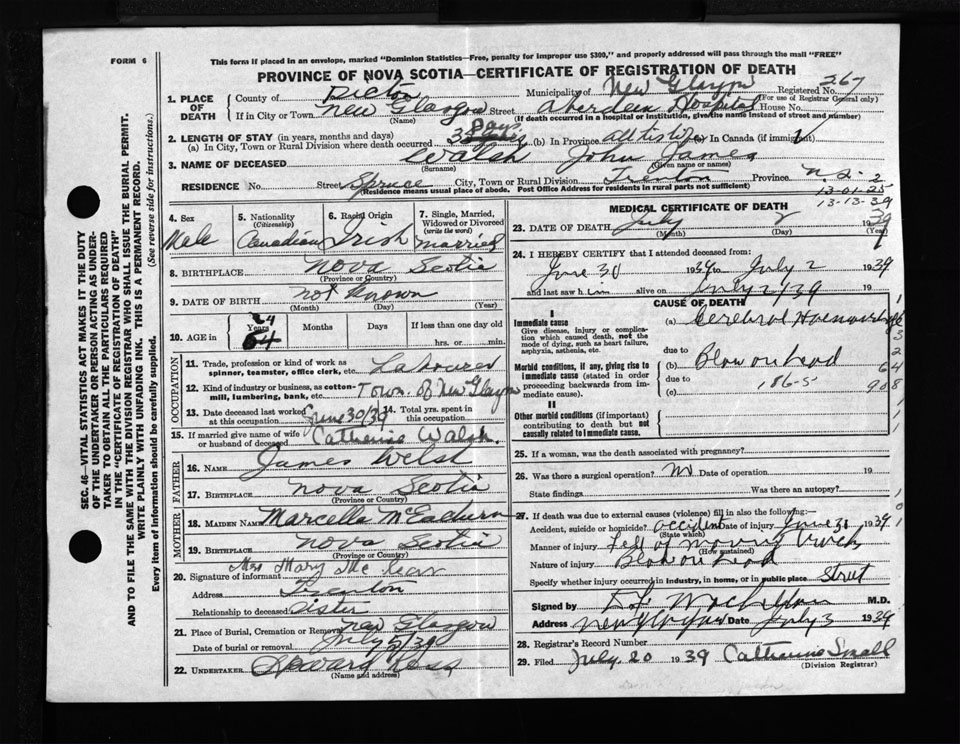 FORM 6
This form if placed in an envelope, marked "Dominion Statistics—Free, penalty for improper use $300," and properly addressed will pass through the mail "FREE"
PROVINCE OF NOVA SCOTIA—CERTIFICATE OF REGISTRATION OF DEATH
267
1. PLACE OF DEATH
County of Pictou Municipality of New Glasgow Registered No.
(For use of Registrar General only)
If in City or Town New Glasgow Street Aberdeen Hospital House No.
(Name) (If death occurred in a hospital or institution, give the name instead of street and number)
2. LENGTH OF STAY (in years, months and days)
(a) In City, Town or Rural Division where death occurred 3 Days (b) In Province all his life (c) In Canada (if immigrant)
3. NAME OF DECEASED Walsh John James
(Surname) (Given name or names)
RESIDENCE No. Street Spruce City, Town or Rural Division Trenton Province N.S.
(Residence means usual place of abode. Post Office Address for residents in rural parts not sufficient)
2
13-01-25
13-13-39
4. Sex Male
5. Nationality (Citizenship) Canadian
6. Racial Origin Irish
7. Single, Married, Widowed or Divorced (write the word) Married
8. BIRTHPLACE Nova Scotia
(Province or Country)
9. DATE OF BIRTH not known
(Month) (Day) (Year)
10. AGE in 64 Years Months Days If less than one day old
hrs. or min.
OCCUPATION
11. Trade, profession or kind of work as spinner, teamster, office clerk, etc. Labourer
12. Kind of industry or business, as cotton-mill, lumbering, bank, etc Town of New Glasgow
13. Date deceased last worked at this occupation June 30/39 14. Total yrs. spent in this occupation
15. If married give name of wife or husband of deceased Catherine Walsh.
FATHER
16. NAME James Welsh
17. BIRTHPLACE Nova Scotia
(Province or Country)
MOTHER
18. MAIDEN NAME Marcella McEachern
19. BIRTHPLACE Nova Scotia
(Province or Country)
20. Signature of informant Mrs Mary Mc Kean
Address Trenton
Relationship to deceased Sister
21. Place of Burial, Cremation or Removal New Glasgow
Date of burial or removal July 5/39
22. UNDERTAKER
(Name and address)
MEDICAL CERTIFICATE OF DEATH
23. DATE OF DEATH July 2 1939
(Month) (Day) (Year)
24. I HEREBY CERTIFY that I attended deceased from:
June 30 1939 to July 2 1939
and last saw him alive on July 2/39 19
CAUSE OF DEATH
I
Immediate cause
Give disease, injury or complication which caused death, not the mode of dying, such as heart failure, asphyxia, asthenia, etc.
(a) Cerebral Haemorrhage
due to
Morbid conditions, if any, giving rise to immediate cause (stated in order proceeding backwards from immediate cause).
(b) Blow on head
due to 186-5
(c)
II
Other morbid conditions (if important) contributing to death but not causally related to immediate cause.
25. If a woman, was the death associated with pregnancy?
26. Was there a surgical operation? No Date of operation 19
State findings Was there an autopsy?
27. If death was due to external causes (violence) fill in also the following:—
Accident, suicide or homicide? accident Date of injury June 30 1939
(State which)
Manner of injury Fell of moving truck
(How sustained)
Nature of injury Blow on head
Specify whether injury occurred in industry, in home, or in public place Street
Signed by M.D.
Address New Glasgow Date July 3 1939
28. Registrar's Record Number
29. Filed July. 20 1939 Catharine Small
(Division Registrar)
SEC. 46—VITAL STATISTICS ACT MAKES IT THE DUTY
OF THE UNDERTAKER OR PERSON ACTING AS UNDER-
TAKER TO OBTAIN ALL THE PARTICULARS REQUIRED
IN THE "CERTIFICATE OF REGISTRATION OF DEATH"
AND TO FILE THE SAME WITH THE DIVISION REGISTRAR WHO SHALL ISSUE THE BURIAL PERMIT.
WRITE PLAINLY WITH UNFADING INK. THIS IS A PERMANENT RECORD.
Every item of information should be carefully supplied. (See reverse side for instructions.)